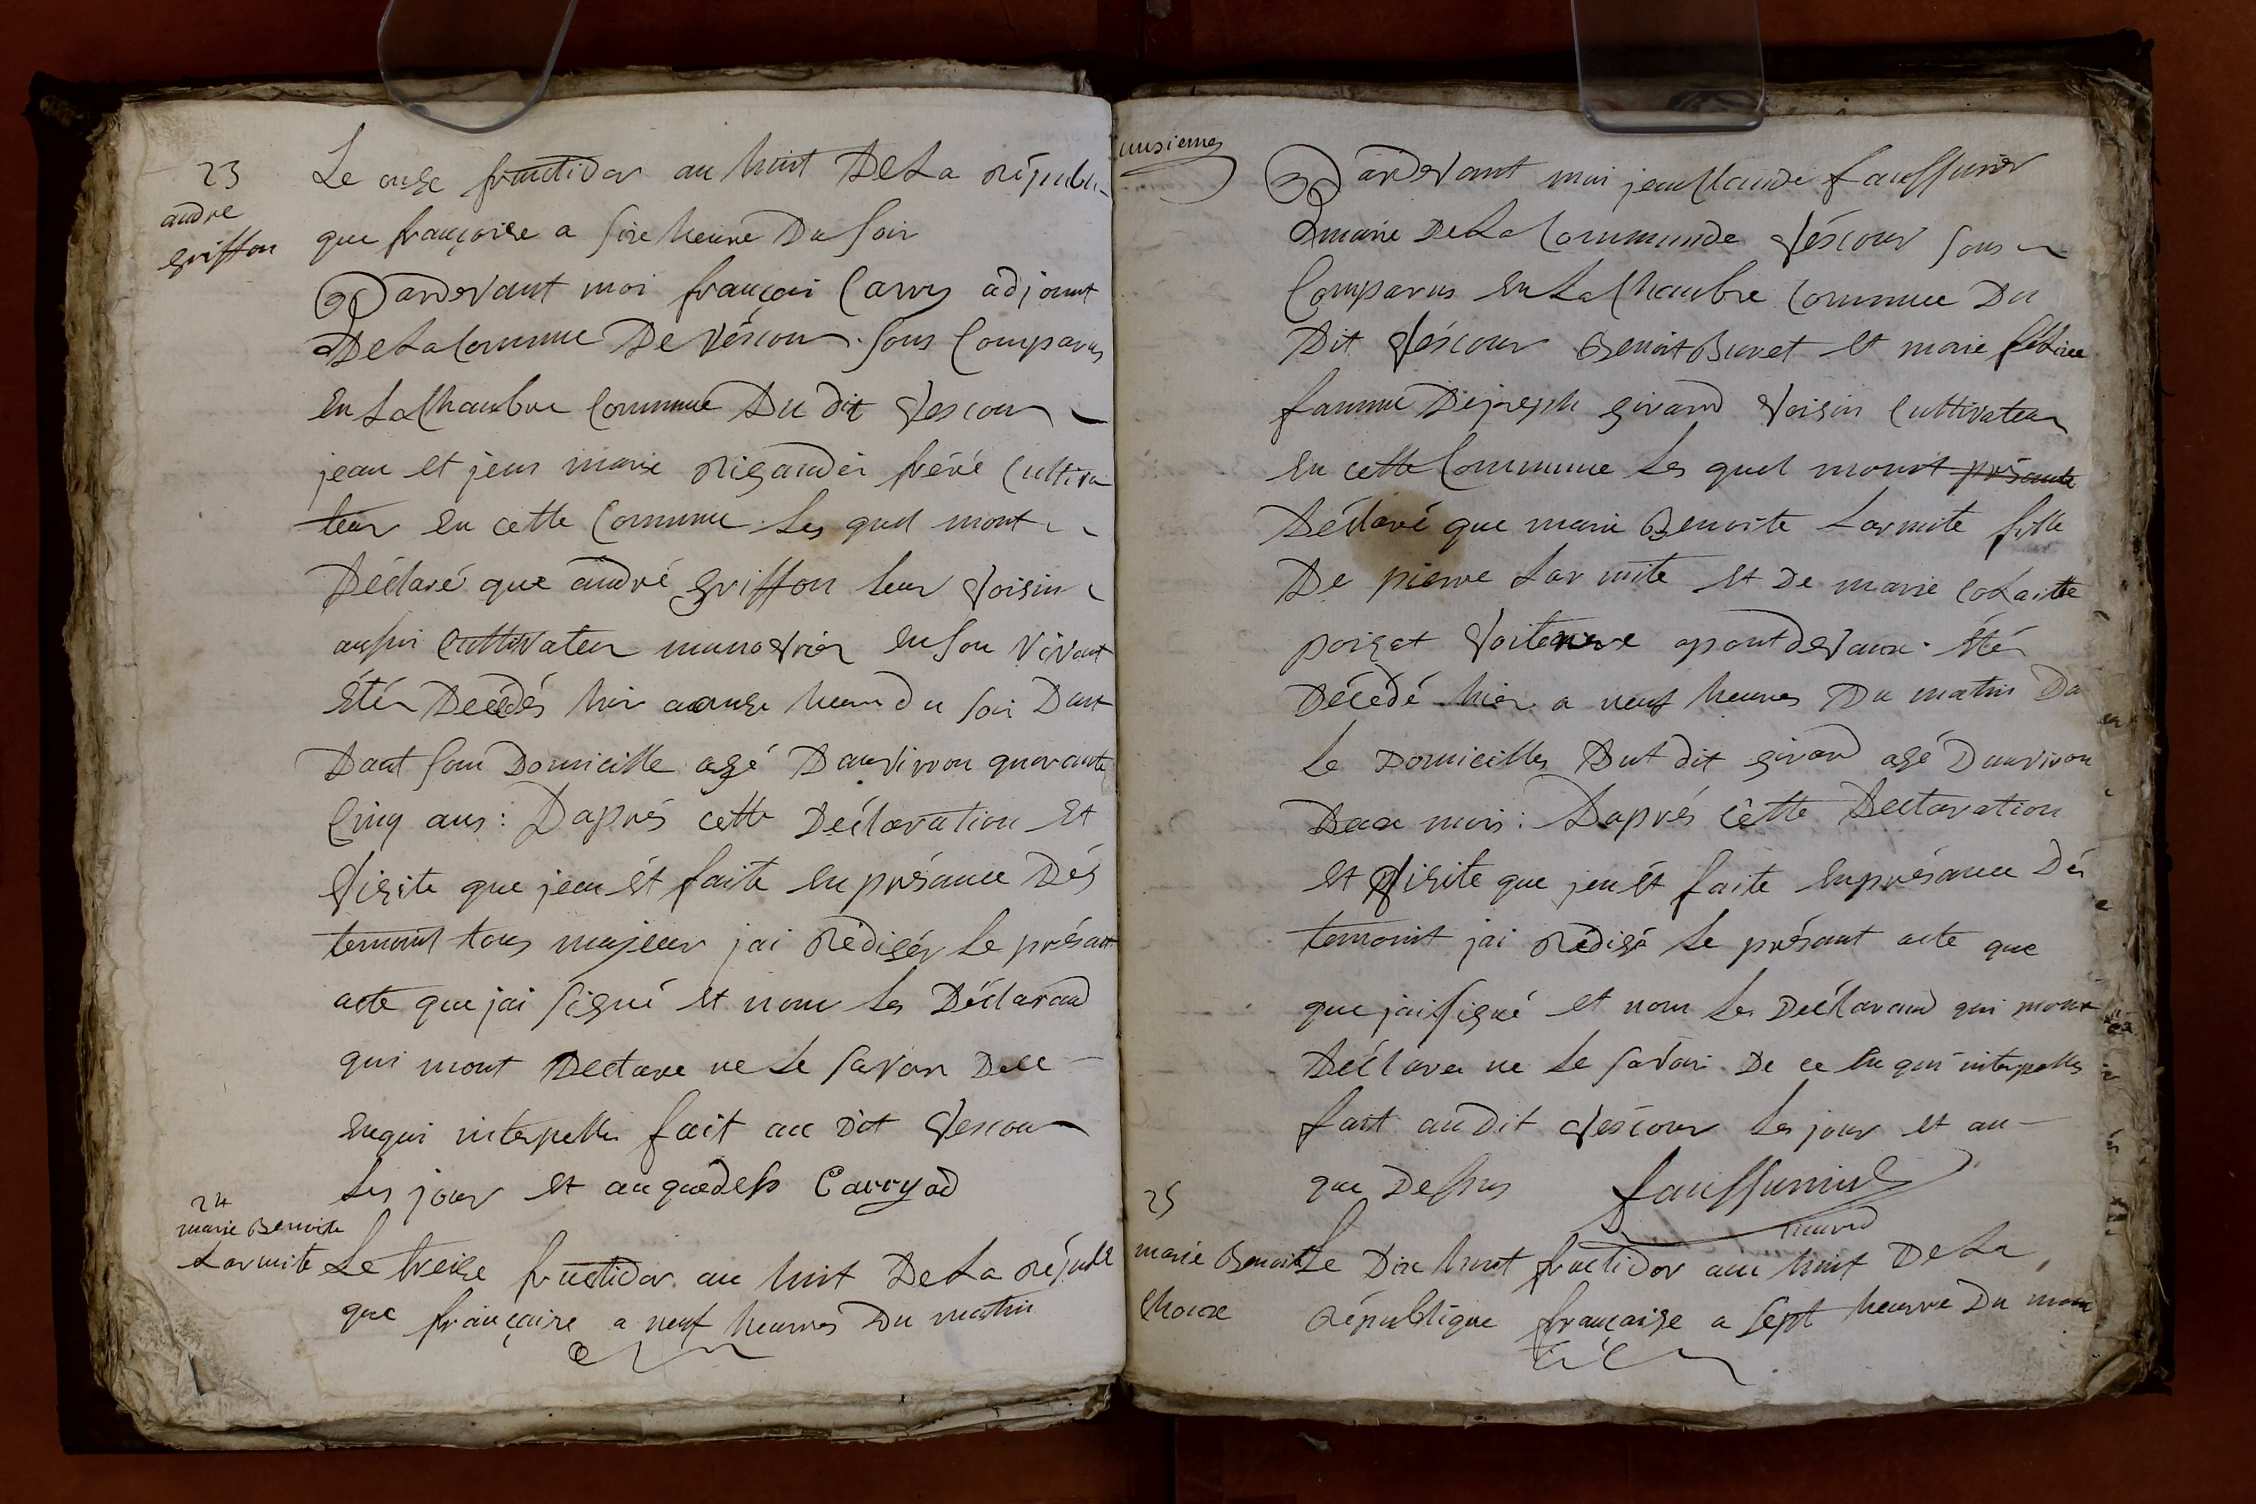 23
andre
griffon
Le onze fructidor an huit De La répubu-
que françoise a sixe heure Du soir
Pardevant moi françois Carry adjoint
De La Commune De Véscour. sous Comparus
en La Chambre Commune Du dit Vescour
jean et jean marie rigaudér fréré Cultiva
teur en cette Commune. Les quel mont
Déclaré que andré griffon leur Voisin
aussi Cultivateur manovrier en son vivant
étér Décédés hier a onze heur du soir Dant
Dant son Domicille agé Danviron quarante
Cinq ans: Daprés cette Déclaration et
Visite que jeau et faite en présance Dés
temoint tous majeur jai rédigér Le présant
acte que jai signé et nom Les Déclarand
qui mont Declare ne Le savoir De ce
enqui interpellé fait au dit Vescour
Les jour et an quedess Carry ad
24
marie Benoite
Larmite
Le treize fructidor an huit De La républi
que françaire a neuf heures Du matin
onsiemes
Pardevant moi jean Claude faussurier
maire De La Commune de Véscour sous
Comparus en La Chambre Commune Du
Dit Véscour Benoit Buret et marie
famme De joseph girard Voisin Cultivateur
en cette Commune Les quel mont présante
Déclaré que marie Benoite Larmite fille
De pierre Larmite et De marie Colaitte
poizat Voiturere a pontdevaux. étér
Décedé hier a neuf heures Du matin Da
Le Domicilles Dut dit girard agé Danviron
Deux mois: Daprés cette Declaration
et Visite que jeu et faite enprésance Dés
temoint jai rédigé Le présant acte que
que jai signé et nom Les Déclarand qui mont
Déclarer ne Le savoir De ce en qui interpellés
fait au Dit Véscour Les jour et an
que Dessus fauffurier
maire
25
marie Benoite
Choux
Le Dix huit fructidor an huit De La
république françaize a sept heurre Du